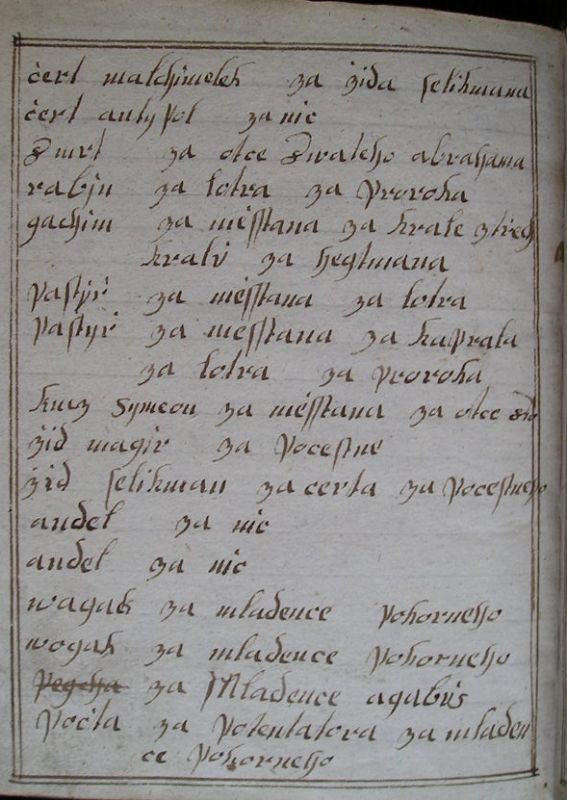 čert malchimelek za žida selikmana
čert antypol za nic
Smrt za otce Swateho abrahama
rabin za lotra za Proroka
gachim za měsstana za krale ztřech
kralů za hegtmana
Pastýř za měsstana za lotra
Pastýř za měsstana za kaprala
za lotra za Proroka
knez Symeon za měsstana za otce
žid magir za Pocestne
žid selikman za certa za Pocestneho
anděl za nic
anděl za nic
wagak za mladence Pokorneho
wogak za mladence Pokorneho
Pegcha za Mladence agabus
Počta za Potentatora za mladen
ce Pokorneho